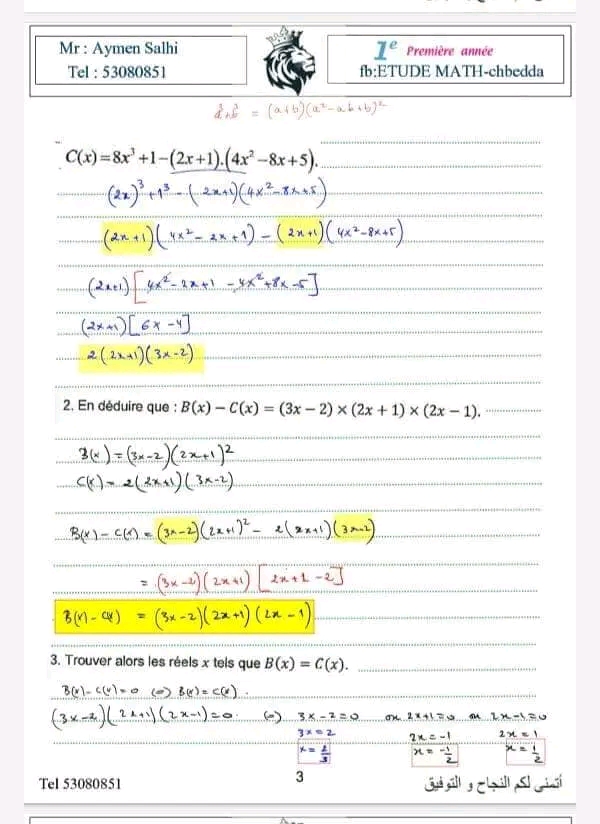 Mr : Aymen Salhi
Tel : 53080851
1e Première année
fb:ETUDE MATH-chbedda
a³+b³ = (a+b)(a²-ab+b)²
C(x)=8x³+1−(2x+1).(4x²−8x+5).
(2x)³+1³-(2x+1)(4x²-8x+5)
(2x+1)(4x²-2x+1)-(2x+1)(4x²-8x+5)
(2x+1)[4x²-2x+1-4x²+8x-5]
(2x+1)[6x-4]
2(2x+1)(3x-2)
2. En déduire que : B(x) − C(x) = (3x − 2) × (2x + 1) × (2x − 1).
B(x)=(3x-2)(2x+1)²
C(x)=2(2x+1)(3x-2)
B(x)-C(x)=(3x-2)(2x+1)²-2(2x+1)(3x-2)
=(3x-2)(2x+1)[2x+1-2]
B(x)-C(x) = (3x-2)(2x+1)(2x-1)
3. Trouver alors les réels x tels que B(x) = C(x).
B(x)-C(x)=0 (=) B(x)=C(x).
(3x-2)(2x+1)(2x-1)=0. (=) 3x-2=0 ou 2x+1=0 ou 2x-1=0
3x=2 2x=-1 2x=1
x=2/3 x=-1/2 x=1/2
Tel 53080851
3
أتمنى لكم النجاح و التوفيق